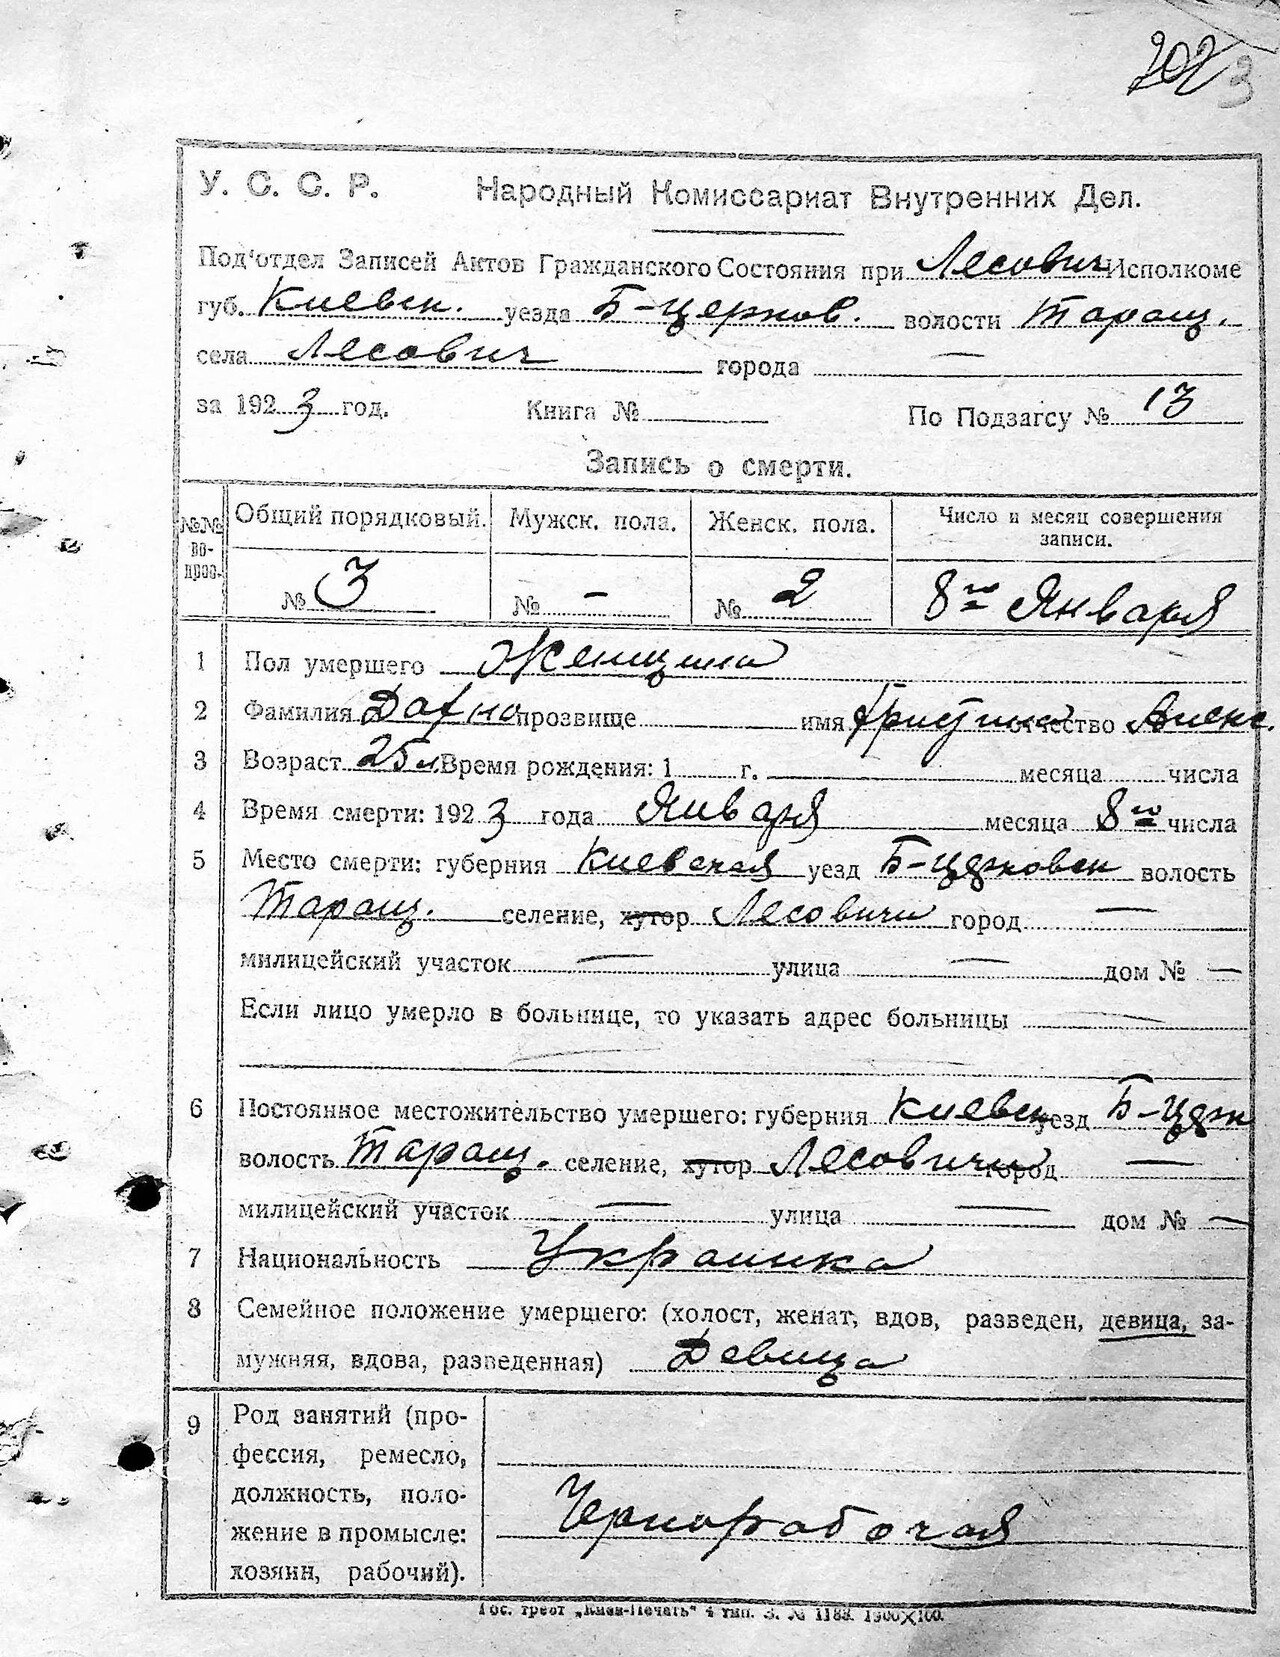 202 3
У. С. С. Р. Народный Комиссариат Внутренних Дел.
Под'отдел Записей Актов Гражданского Состояния при Лесович Исполкоме
губ. Киевск. уезда Б-церков. волости Таращ.
села Лесович города —
за 1923 год. Книга № По Подзагсу № 13
Запись о смерти.
№№ вопрос. Общий порядковый. Мужск. пола. Женск. пола. Число и месяц совершения записи.
№ 3 № — № 2 8го Января
1 Пол умершего Женщина
2 Фамилия прозвище имя отчество Алекс.
3 Возраст 25 л. Время рождения: 1 г. месяца числа
4 Время смерти: 1923 года Января месяца 8го числа
5 Место смерти: губерния Киевская уезд Б-Церковск волость
Таращ. селение, хутор Лесовичи город —
милицейский участок — улица — дом № —
Если лицо умерло в больнице, то указать адрес больницы —
6 Постоянное местожительство умершего: губерния Киевск уезд Б-Церк
волость Таращ. селение, хутор Лесовичи город —
милицейский участок — улица — дом № —
7 Национальность Украинка
8 Семейное положение умершего: (холост, женат, вдов, разведен, девица, за-
мужняя, вдова, разведенная) Девица
9 Род занятий (про-
фессия, ремесло,
должность, поло-
жение в промысле:
хозяин, рабочий).
Чернорабочая
Гос. трест „Киев-Печать" 4 тип. З. № 1188. 1900×100.